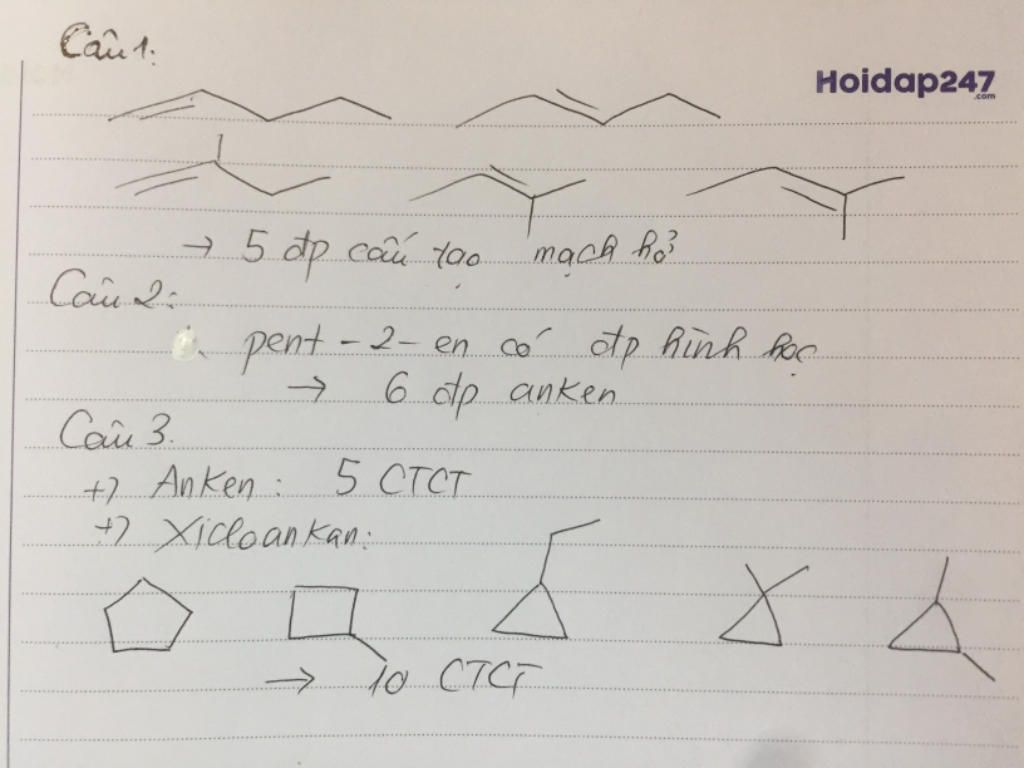 Câu 1:
Hoidap247
.com
→ 5 đp cấu tạo mạch hở
Câu 2:
pent - 2 - en có đp hình học
→ 6 đp anken
Câu 3.
+) Anken: 5 CTCT
+) Xicloankan:
→ 10 CTCT